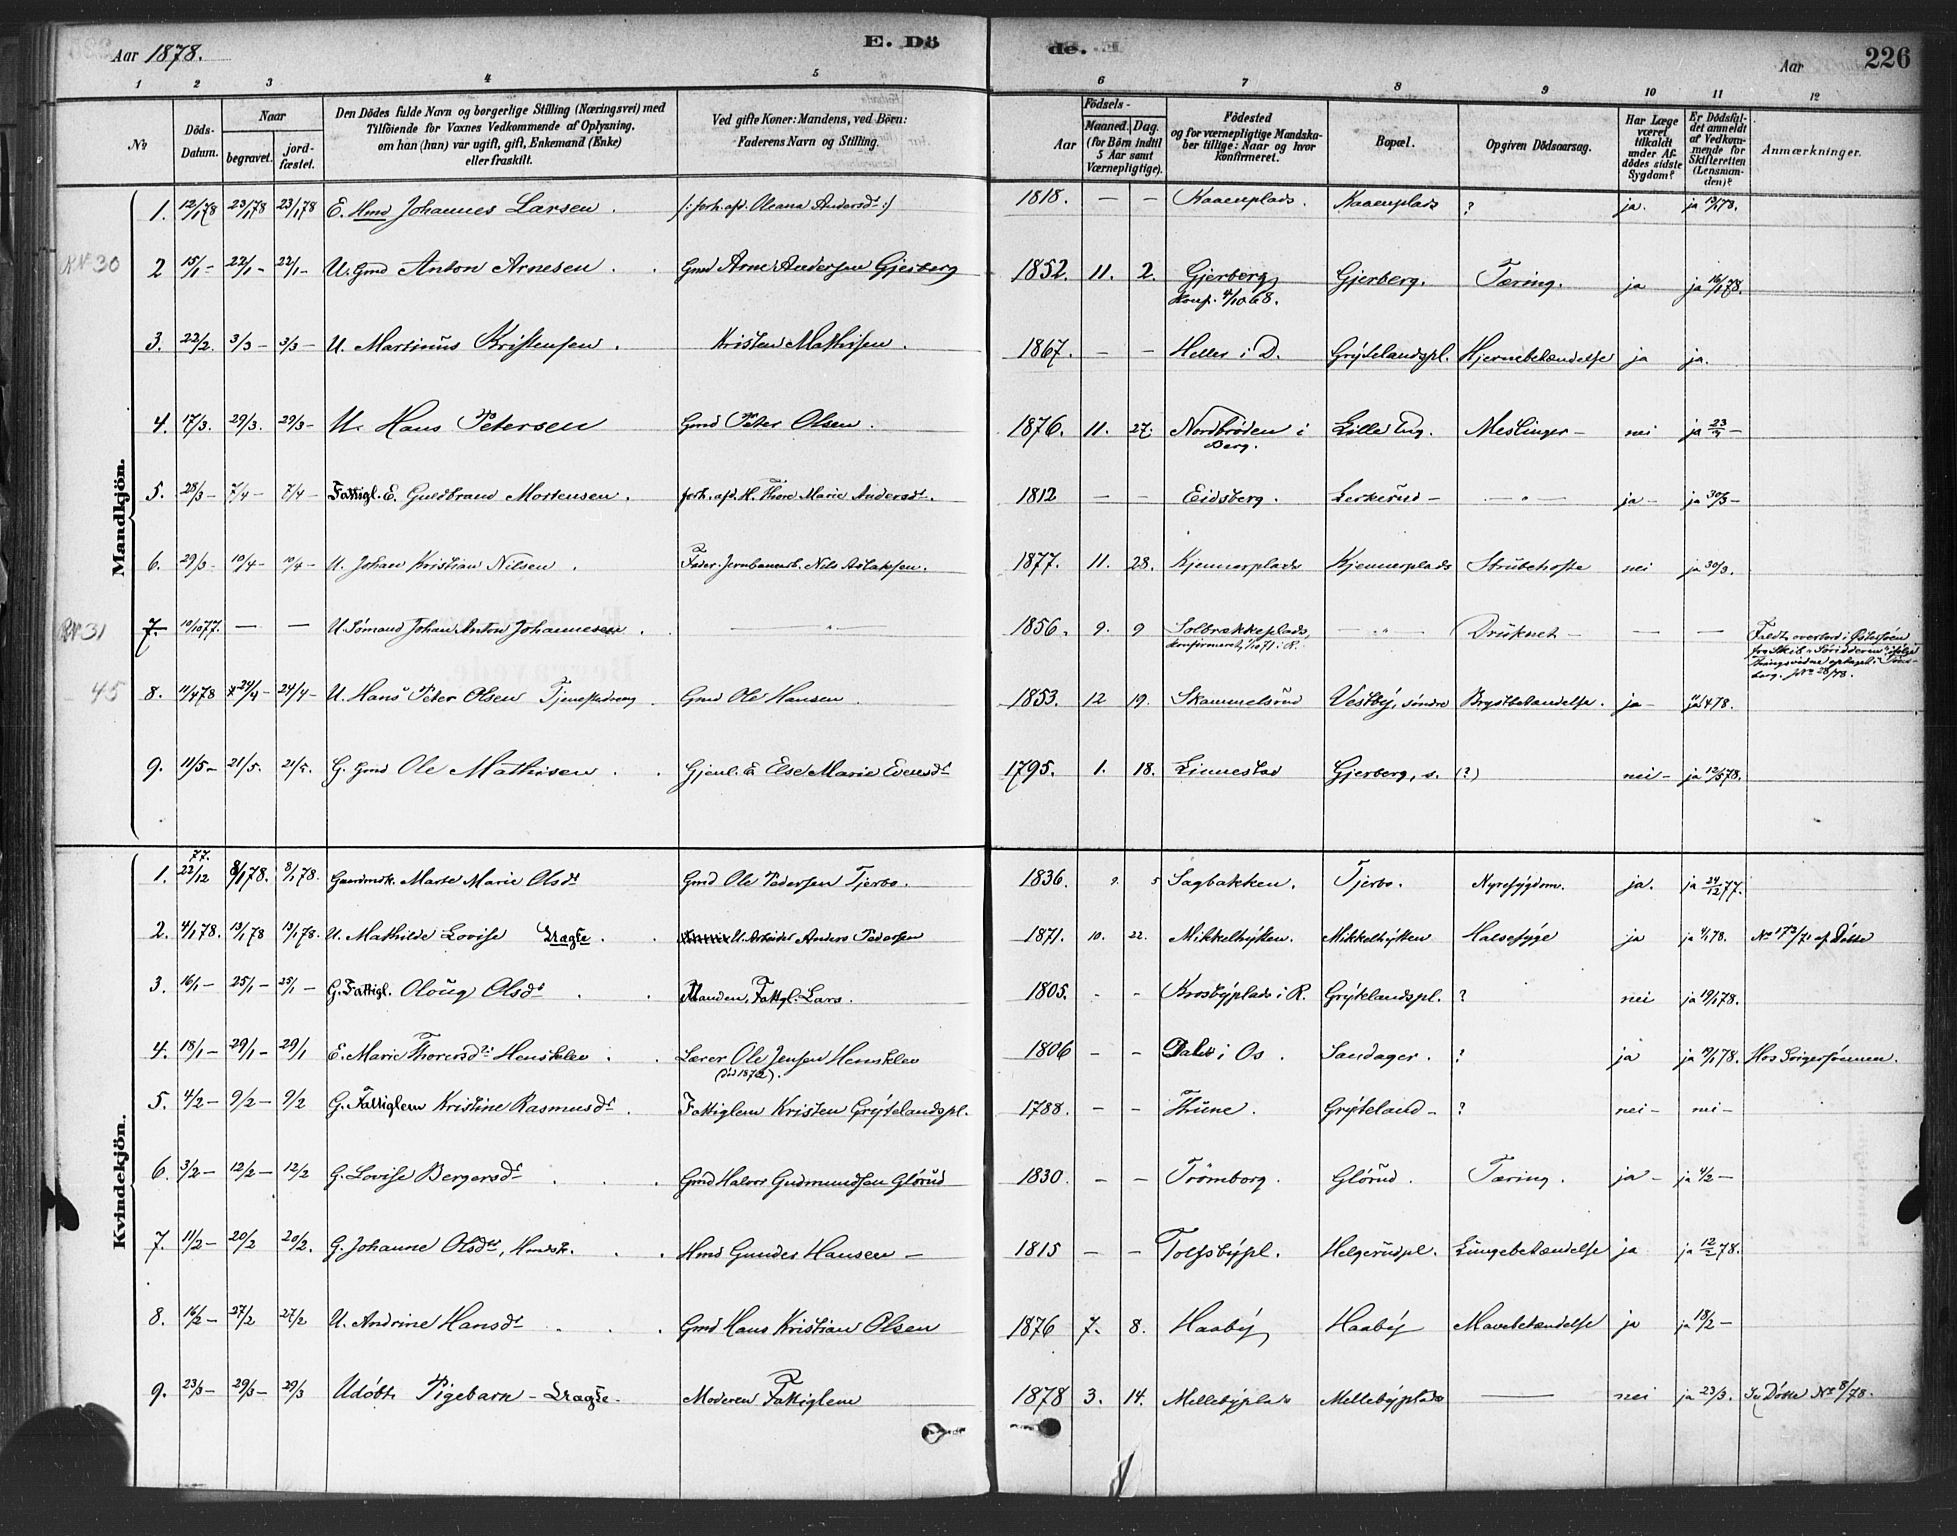 Aar 1878.
E. Dö
de.
Aar
226
1 2 3 4 5 6 7 8 9 10 11 12
No
Döds-Datum.
Naar
begravet. jord-fæstet.
Den Dödes fulde Navn og borgerlige Stilling (Næringsvei) med
Tilföiende for Voxnes Vedkommende af Oplysning,
om han (han) var ugift, gift, Enkemand (Enke)
eller fraskilt.
Ved gifte Koner: Mandens, ved Börn:
Faderens Navn og Stilling.
Födsels-
Aar Maaned. Dag.
(for Börn indtil 5 Aar samt Værnepligtige).
Födested
og for værnepligtige Mandska-
ber tillige: Naar og hvor
konfirmeret.
Bopæl.
Opgiven Dödsaarsag.
Har Læge været tilkaldt under Af-dödes sidste Sygdom?
Er Dödsfal-det anmeldt af Vedkom-mende for Skifteretten (Lensman-den)?
Anmærkninger.
Mandkjön.
1. 12/1 78 23/1 78 23/1 78 E. Hmd Johannes Larsen. /: forh. afd. Oleana Andersdr :/ 1818. — — Kaaenplads. Kaaenplads ? ja. ja 13/1 78.
RN 30
2 15/1 - 22/1 - 22/1 - U. Gmd Anton Arnesen. Gmd Arne Andersen Gjerberg 1852. 11. 2. Gjerberg Gjerberg. Tæring. ja ja 16/1 78.
Konf. 4/10 68.
3. 22/2. 3/3 - 3/3 - U. Martinus Kristensen. Kristen Mathisen. 1867. — — Heller i D. Grytelandspl. Hjernebetændelse ja ja.
4. 17/3. 29/3. 29/3 - U. Hans Petersen Gmd Peter Olsen. 1876. 11. 27. Nordbröden i Lille Eng. Meslinger — nei ja 23/3 —
Berg.
5. 28/3 - 7/4 - 7/4 - Fattigl. E. Guldbrand Mortensen. forh. afd. H. Thore Marie Andersdr. 1812 — — Eidsberg. Lerkerud — — " — ja — ja 30/3 -
6. 29/3 - 10/4 - 10/4 - U. Johan Kristian Nilsen. Fader: Jernbanearb. Nils Aslaksen. 1877. 11. 28. Kjennerplads Kjennerplads Strubehoste nei ja 30/3.
RN 31
7. 10/10 77. — — U. Sömand Johan Anton Johannesen. — " — 1856. 9. 9 Solbrækkeplads — " — Druknet — — —
konfirmeret 1/10 71 i R.
Faldt overbord i Østersöen
fra Skib "Söridderen" ifölge
Thingsvidne optaget i Töns-
berg. JNo 28/78.
45
8. 11/4 78 24/4 - 24/4 - U. Hans Peter Olsen Tjenestedreng Gmd Ole Hansen. 1853. 12 19. Skammelsrud Vestby, söndre Brystbetændelse. ja — ja 4 78.
9. 11/5 - 21/5. 21/5. G. Gmd Ole Mathisen. Gjenl. E. Else Marie Evensdr 1795. 1. 18. Linnestad Gjerberg, s. (?) nei — ja 12/5 78.
Kvindekjön.
77.
1. 22/12 8/1 78. 8/1 78. Gaardmdk. Marte Marie Olsdr Gmd Ole Pedersen Tjerbo. 1836. 9. 5 Sagbakken. Tjerbo. Nyresygdom. ja. ja 24/12 77.
2. 4/1 78. 13/1 78 13/1 78. U. Mathilde Lovise Uægte. U. Arbeider Anders Pedersen 1871. 10. 22. Mikkelhytten. Mikkelhytten Halsesyge ja ja 4/1 78. No 172/71 af Döbte
3. 16/1 - 25/1 - 25/1 - G. Fattigl. Oloug Olsdr Manden, Fattgl. Lars. 1805. - - Krosbyplads i R. Grytelandspl. ? nei ja 19/1 78.
4. 18/1 - 29/1 - 29/1 E. Marie Thorersdr Henskelev. Lærer Ole Jensen Henskelev 1806 - - Dalen i Os. Sandager. ? ja ja 19/1 78. Hos Svigersönnen.
(död 1872).
5. 4/2 - 9/2 - 9/2 G. Fattiglem Kristine Rasmusdr. Fattiglem Kristen Grytelandspl. 1788. - - Thune. Gryteland - ? nei — nei —
6. 3/2 - 12/2 - 12/2 G. Lovise Bergersdr. Gmd Halvor Gudmundsen Glörud 1830. - - Trömborg. Glörud. Tæring. ja — ja 4/2 —
7. 11/2 - 20/2 20/2. G. Johanne Olsdr, Hmdsk. Hmd Gunder Hansen — 1815 — — Tolfsbypl. Helgerudpl. Lungebetændelse ja ja 12/2 78.
8. 16/2 - 27/2 27/2 U. Andrine Hansdr Gmd Hans Kristian Olsen 1876 7. 8. Haaby Haaby Mavebetændelse ja ja 18/2 —
9. 23/3 - 29/3 - 29/3 Udöbt Pigebarn - Uægte. Moderen Fattiglem 1878 3. 14. Mellebyplads Mellebyplads — nei ja 23/3. Se Döbte No 8/78.